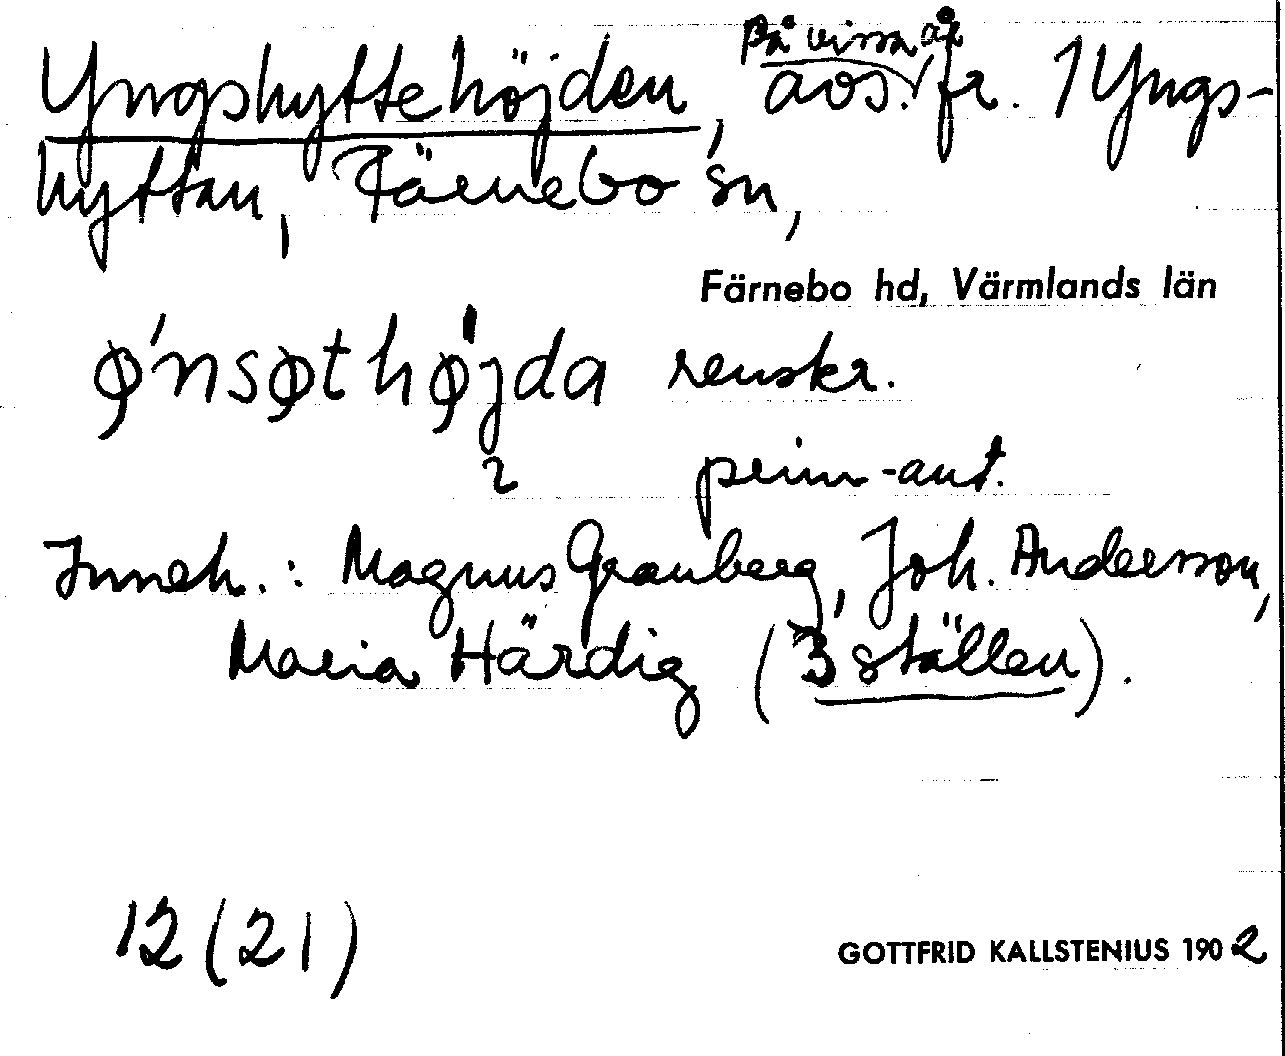 På vissa åt
Yngshyttehöjden, avs. fr. 1 Yngs-
hyttan, Färnebo sn,
Färnebo hd, Värmlands län
ǿnsøthø̍jda renskr.
2 prim-ant.
Inneh.: Magnus Granberg, Joh. Andersson,
Maria Härdig (3 ställen).
12 (21)
GOTTFRID KALLSTENIUS 1902